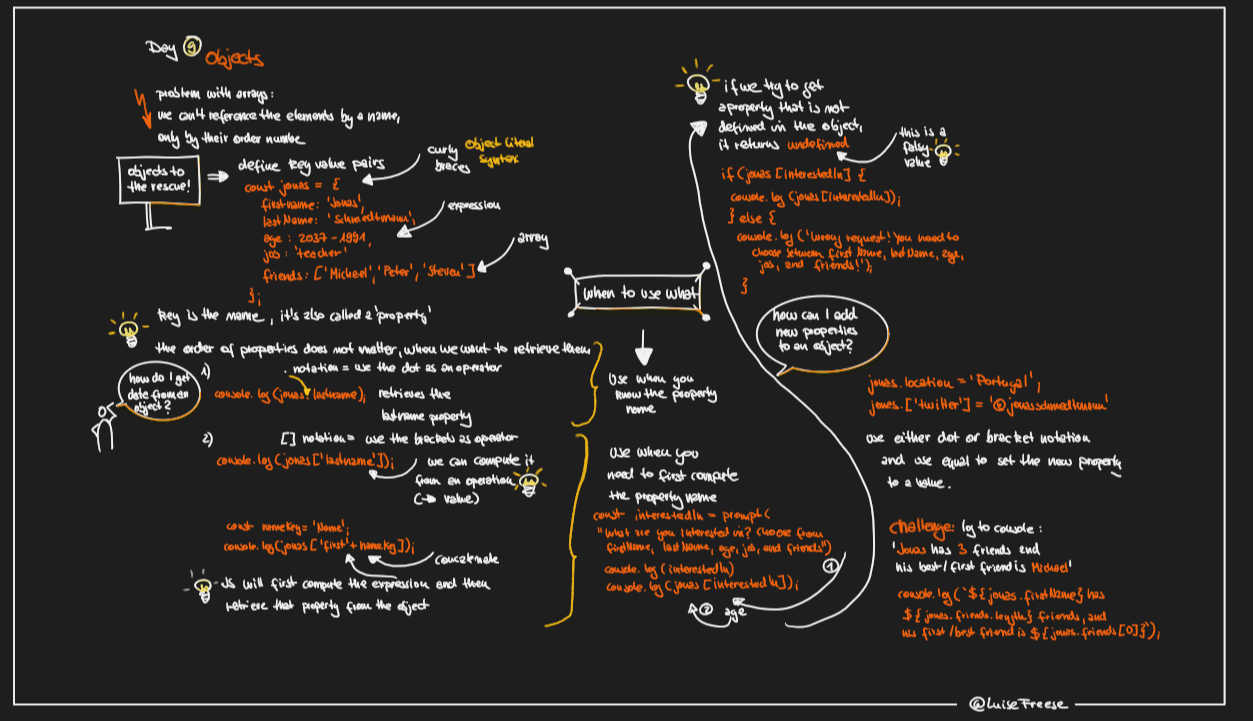 Day 9 Objects
problem with arrays:
we can't reference the elements by a name,
only by their order numbe
objects to
the rescue!
define key value pairs
curly
braces
Object Literal
Syntax
const jonas = {
firstname: 'Jonas',
lastName: 'Schmedtmann',
age : 2037 - 1991,
job : 'teacher'
friends: ['Michael', 'Peter', 'Steven']
};
expression
array
key is the name, it's also called a 'property'
the order of properties does not matter, when we want to retrieve them
how do I get
data from an
object?
1)
. notation = use the dot as an operator
console.log(jonas.lastname);
retrieves the
lastname property
2)
[] notation = use the brackets as operator
console.log(jonas['lastname']);
we can compute it
from an operation
(→ value)
const nameKey = 'Name';
console.log(jonas['first' + nameKey]);
concatenate
JS will first compute the expression and then
retrieve that property from the object
when to use what
Use when you
know the property
name
Use when you
need to first compute
the property name
const interestedIn = prompt(
"What are you interested in? Choose from
firstName, lastName, age, job, and friends")
console.log(interestedIn)
console.log(jonas[interestedIn]);
1
2
age
if we try to get
a property that is not
defined in the object,
it returns undefined
this is a
falsy
value
if (jonas[interestedIn] {
console.log(jonas[interestedIn]);
} else {
console.log('Wrong request! You need to
choose between firstName, lastName, age,
job, and friends!');
}
how can I add
new properties
to an object?
jonas.location = 'Portugal';
jonas.['twitter'] = '@jonasschmedtmann'
use either dot or bracket notation
and use equal to set the new property
to a value.
challenge: log to console :
'Jonas has 3 friends and
his best/first friend is Michael'
console.log(`${jonas.firstName} has
${jonas.friends.length} friends, and
his first/best friend is ${jonas.friends[0]}`);
@LuiseFreese